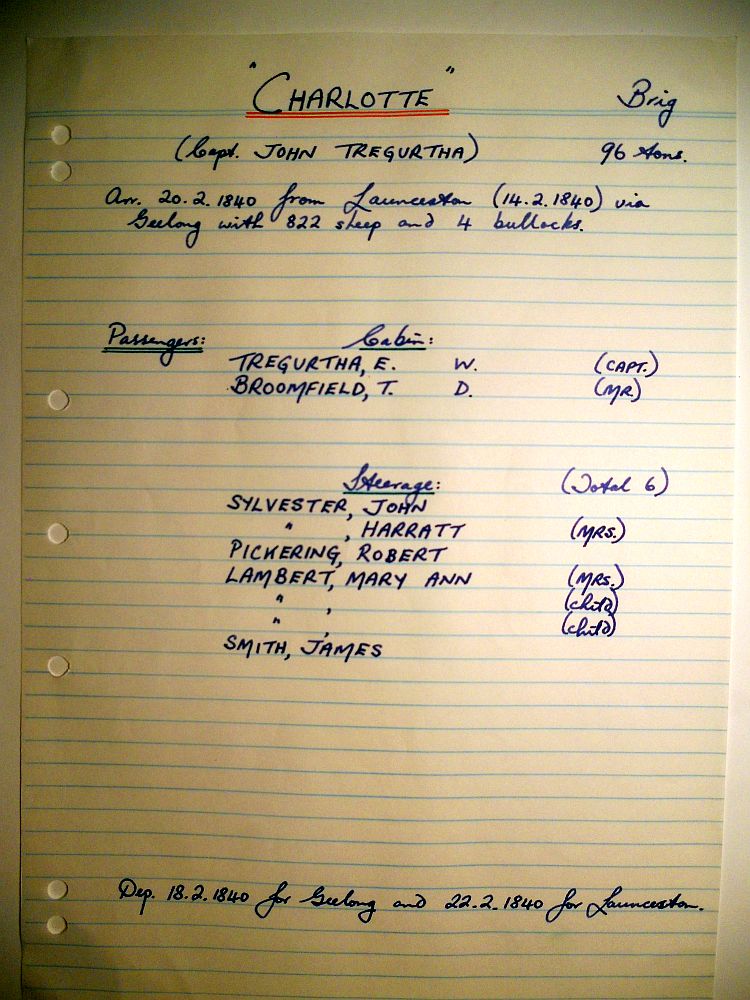 "CHARLOTTE" Brig
(Capt. JOHN TREGURTHA) 96 tons.
Arr. 20.2.1840 from Launceston (14.2.1840) via
Geelong with 822 sheep and 4 bullocks.
Passengers: Cabin:
TREGURTHA, E. W. (CAPT.)
BROOMFIELD, T. D. (MR)
Steerage: (Total 6)
SYLVESTER, JOHN
" , HARRATT (MRS.)
PICKERING, ROBERT
LAMBERT, MARY ANN (MRS.)
" , (child)
" , (child)
SMITH, JAMES
Dep. 18.2.1840 for Geelong and 22.2.1840 for Launceston.